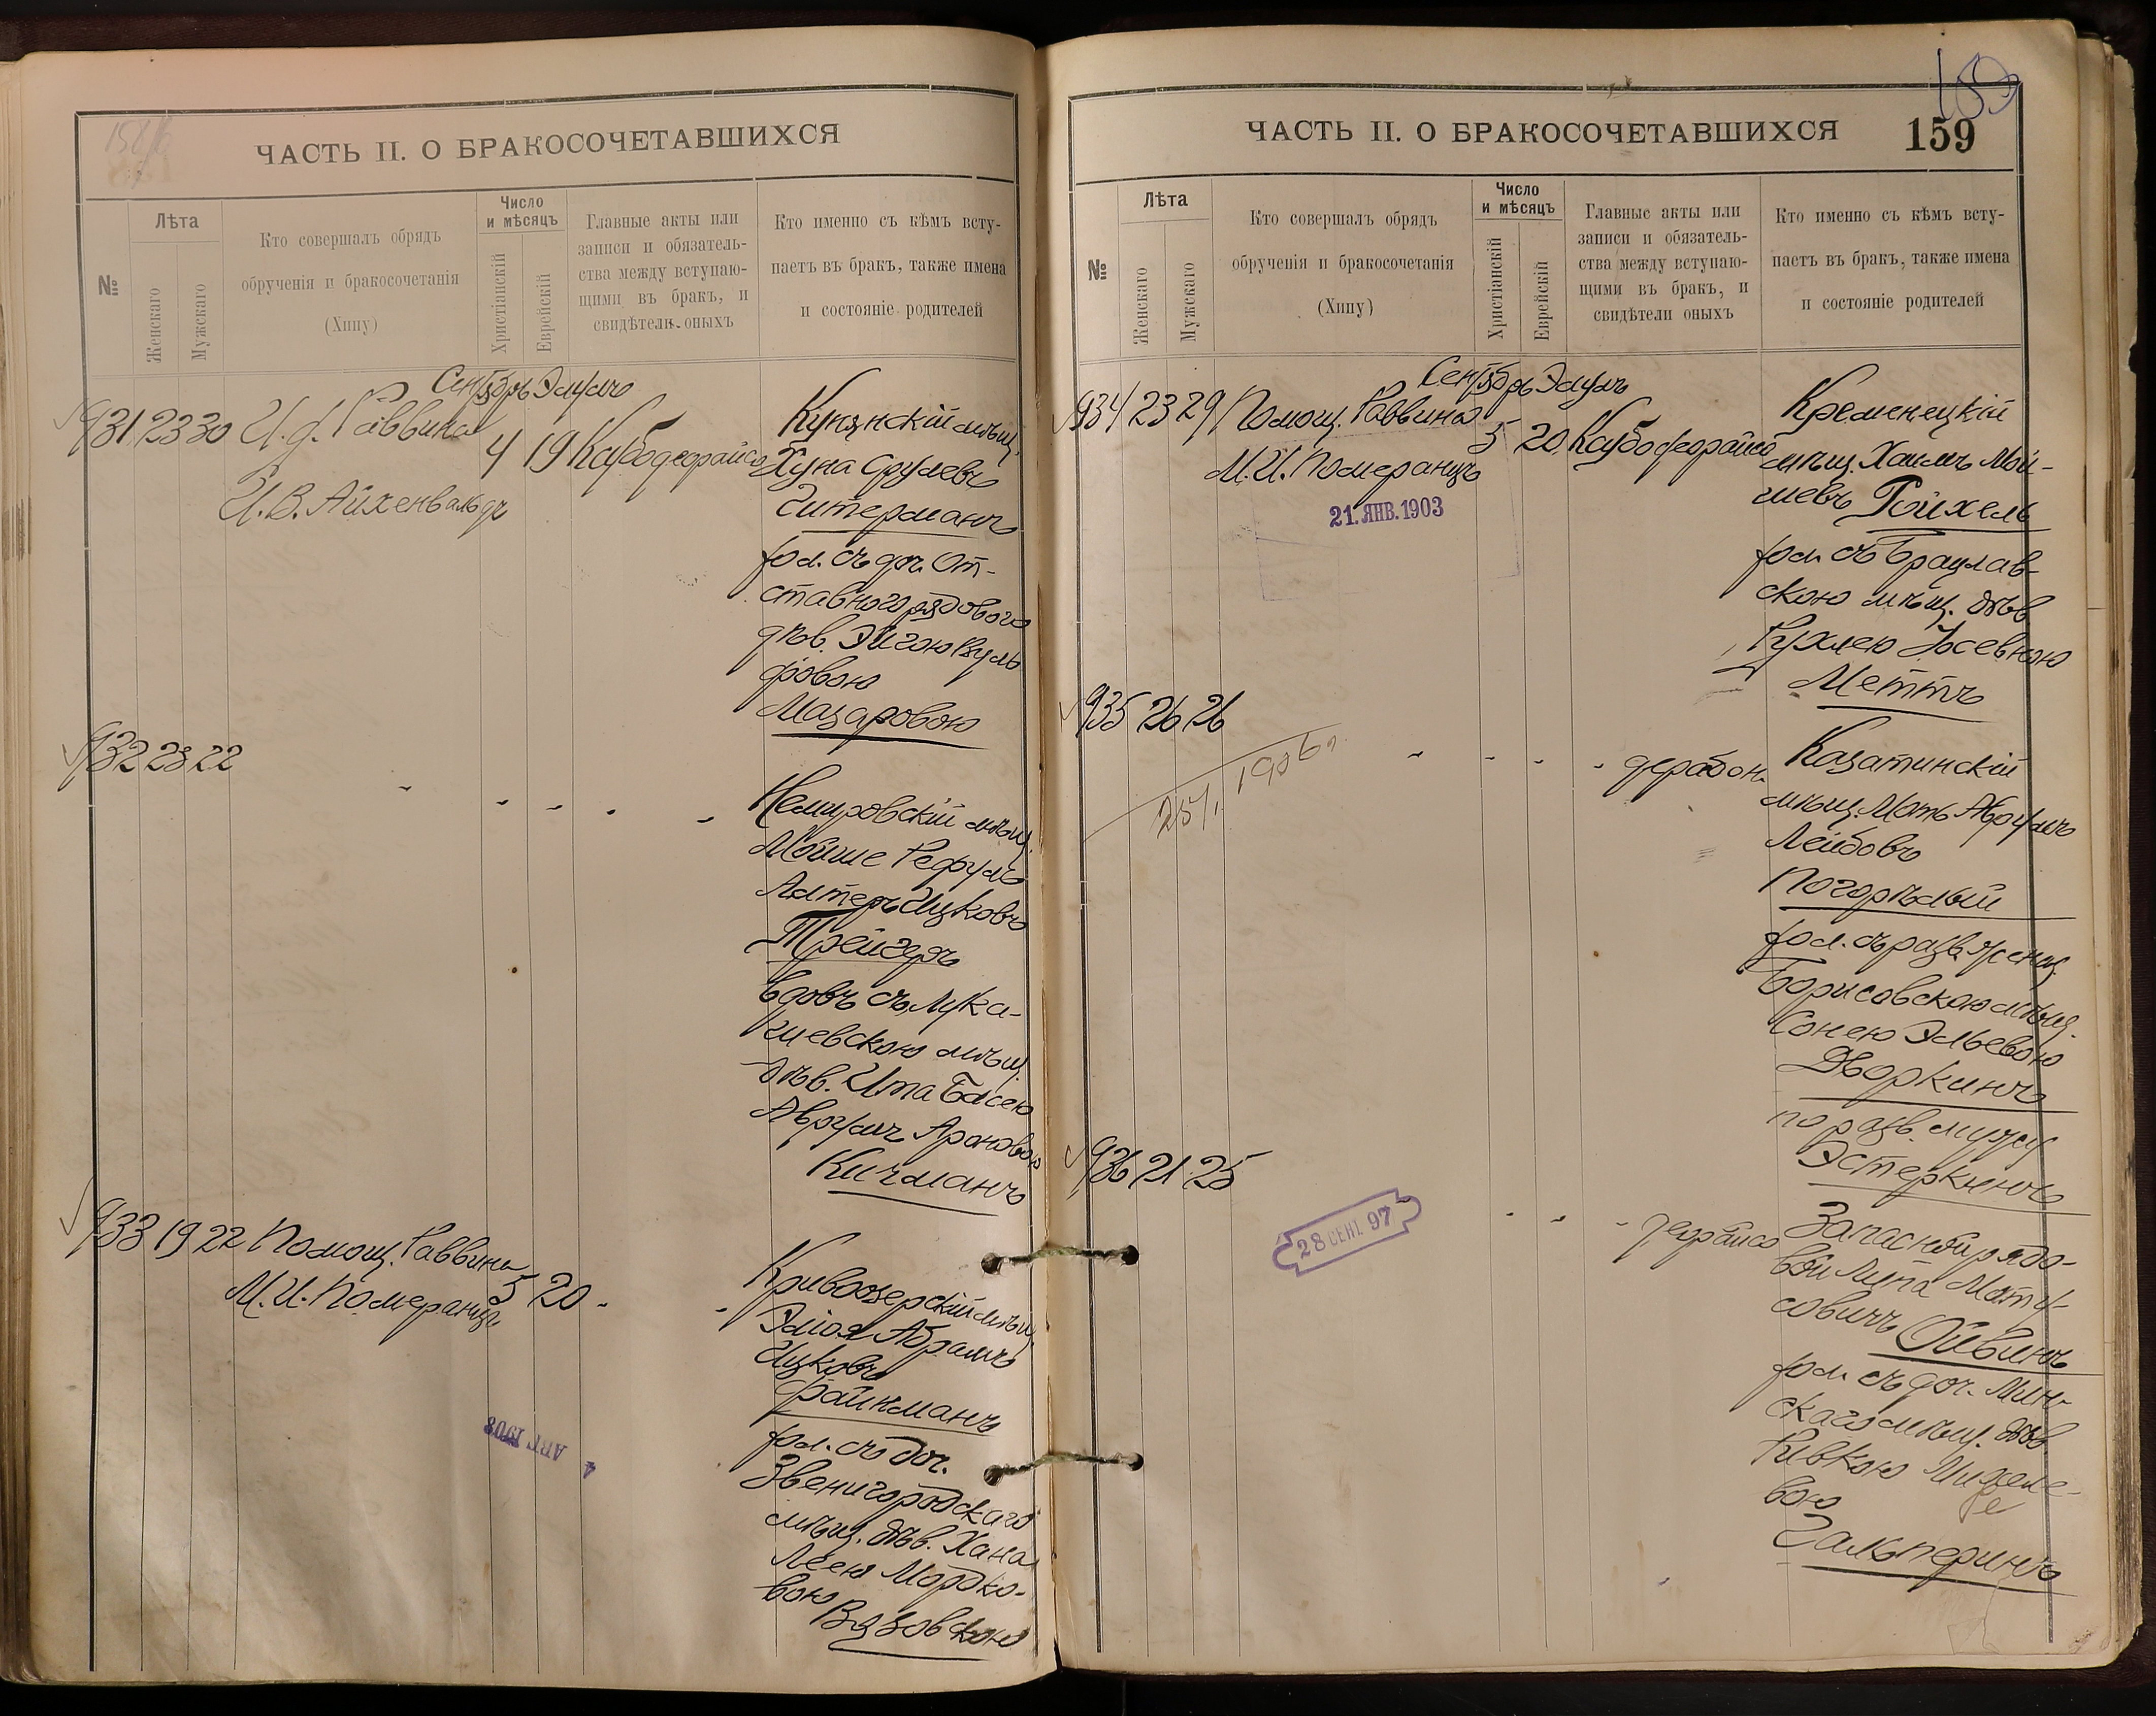 ЧАСТЬ II. О БРАКОСОЧЕТАВШИХСЯ
№
Лѣта
Женскаго
Мужскаго
Кто совершалъ обрядъ
обрученія и бракосочетанія
(Хипу)
Число
и мѣсяцъ
Христіанскій
Еврейскій
Главные акты или
записи и обязатель-
ства между вступаю-
щими въ бракъ, и
свидѣтели оныхъ
Кто именно съ кѣмъ всту-
паетъ въ бракъ, также имена
и состояніе родителей
Сентябрь Элулъ
931 23 30 И. д. Раввина 4 19
И. В. Айхенвальдъ
мѣщ.
Хуна Срулевъ
Гитерманъ
хол. съ доч. От-
ставного рядового
дѣв. Эйгою Вуль
фовою
Мазаровою
932 23 22
Немировскій мѣщ.
Мойше Рефулъ
Алтеръ Ицковъ
Трейгеръ
вдовъ съ Лука-
шевскою мѣщ.
дѣв. Ита Басею
Аврумъ Ароновою
Кичманъ
933 19 22 Помощ. Раввина 5 20
М. И. Померанцъ
Кривоозерскій мѣщ.
Эліоя Абрамъ
Ицковъ
Файнманъ
хол. съ доч.
Звенигородскаго
мѣщ. дѣв. Хана
Леею Мордко-
вою
Вязовскою
4 АВГ 1908
ЧАСТЬ II. О БРАКОСОЧЕТАВШИХСЯ
159
159
№
Лѣта
Женскаго
Мужскаго
Кто совершалъ обрядъ
обрученія и бракосочетанія
(Хипу)
Число
и мѣсяцъ
Христіанскій
Еврейскій
Главные акты или
записи и обязатель-
ства между вступаю-
щими въ бракъ, и
свидѣтели оныхъ
Кто именно съ кѣмъ всту-
паетъ въ бракъ, также имена
и состояніе родителей
Сентябрь Элулъ
934 23 29 Помощ. Раввина 5 20
М. И. Померанцъ
21. ЯНВ. 1903
Кременецкій
мѣщ. Хаимъ Мой-
шевъ Ройхель
хол. съ Брацлав-
скою мѣщ. дѣв
Рухлею Іосевною
Меттъ
935 26 26
1906 г.
Казатинскій
мѣщ. Моть Аврумъ
Лейбовъ
Погорѣлый
хол. съ разв. женщ.
Борисовскою мѣщ.
Сонею Эльевою
Дворкинъ
по разв. мужу
Эстеркинъ
936 21 25
28 СЕНТ. 97
Запасной рядо-
вой Липа Моту-
совичъ Ойвинъ
хол. съ доч. Мин-
скаго мѣщ. дѣв
Ривкою Михеле-
вою
Гальперинъ